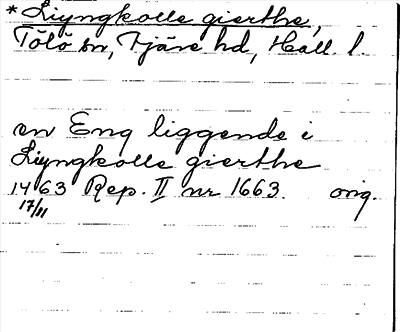 *Liyngkolle gierthe,
Tölö sn, Fjäre hd, Hall. l.
en Eng liggende i
Liyngkolle gierthe
1463 Rep. II nr 1663. orig.
17/11